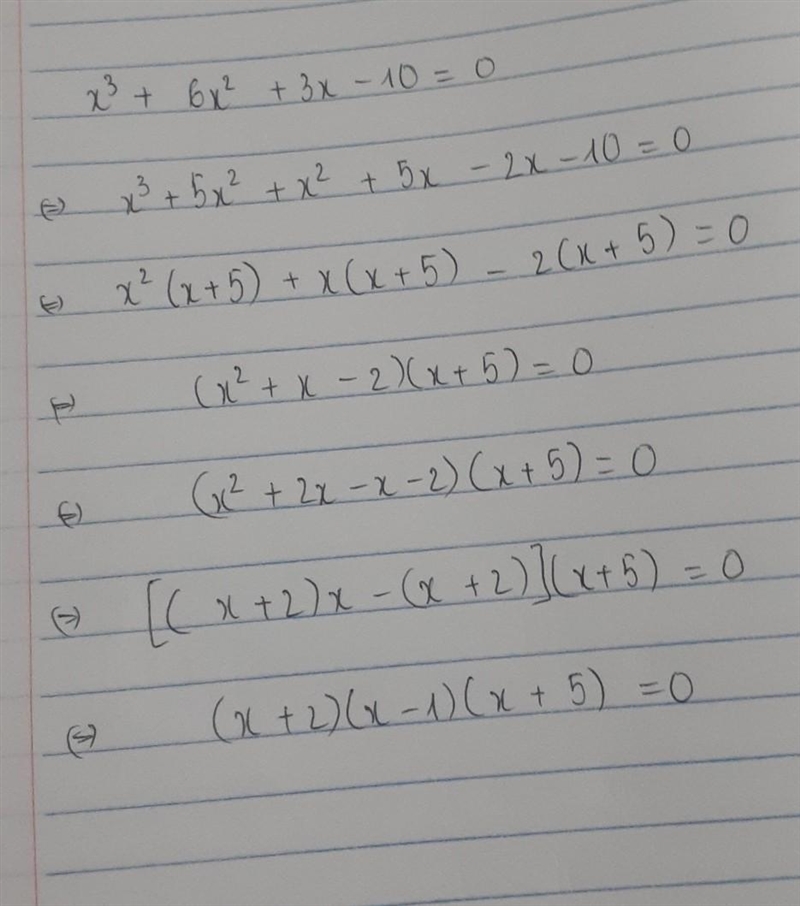 x³ + 6x² + 3x - 10 = 0
⇔ x³ + 5x² + x² + 5x - 2x - 10 = 0
⇔ x² (x+5) + x(x+5) - 2(x+5) = 0
⇔ (x² + x - 2)(x+5) = 0
⇔ (x² + 2x - x - 2)(x+5) = 0
⇔ [(x+2)x - (x+2)](x+5) = 0
⇔ (x+2)(x-1)(x+5) = 0